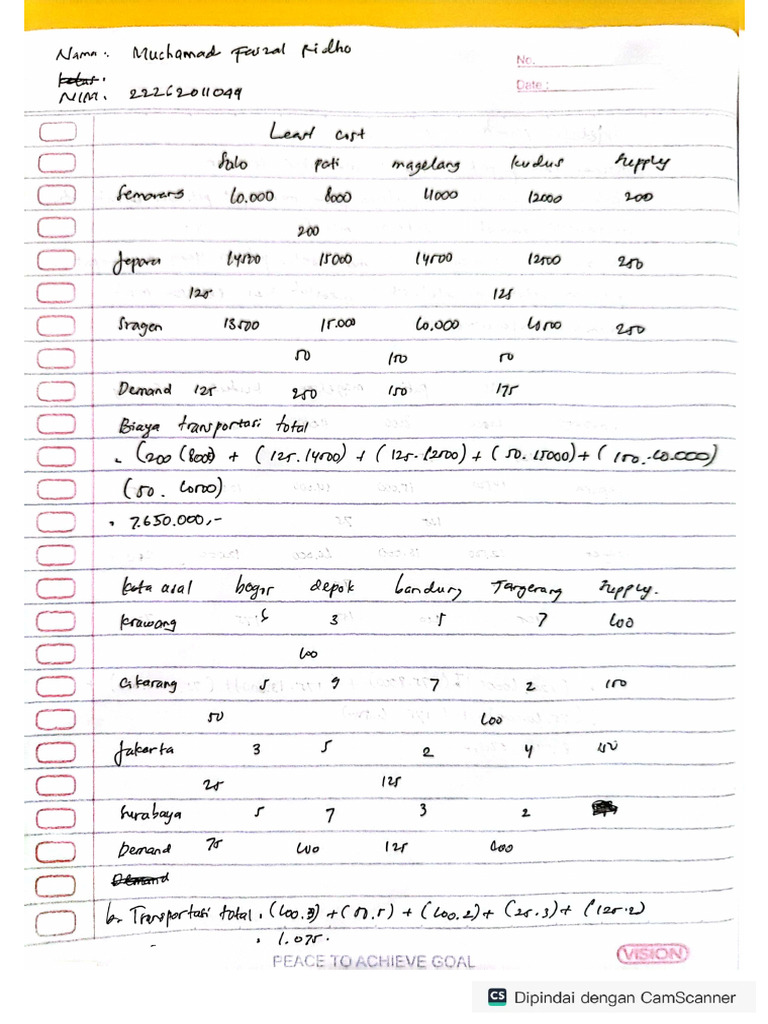 Nama : Muchamad Faizal Ridho
No.
Kelas :
Date :
NIM. 22262011049
Least cost
Solo pati magelang kudus supply
Semarang 10.000 8000 11000 12000 200
200
Jepara 14500 15000 14500 12500 250
125 125
Sragen 13500 15.000 10.000 10500 250
50 150 50
Demand 125 250 150 175
Biaya transportasi total
= (200 (8000) + (125. 14500) + (125. 12500) + (50. 15000) + (150. 10.000)
(50. 10500)
= 7.650.000,-
Kota asal bogor depok bandung Tangerang supply.
Krawang 3 5 7 100
100
Cikarang 5 9 7 2 150
50 100
Jakarta 3 5 2 4 150
25 125
Surabaya 5 7 3 2
Demand 75 100 125 100
Demand
b. Transportasi total = (100.3) + (50.5) + (100.2) + (25.3) + (125.2)
= 1.075.
PEACE TO ACHIEVE GOAL
VISION
CS Dipindai dengan CamScanner